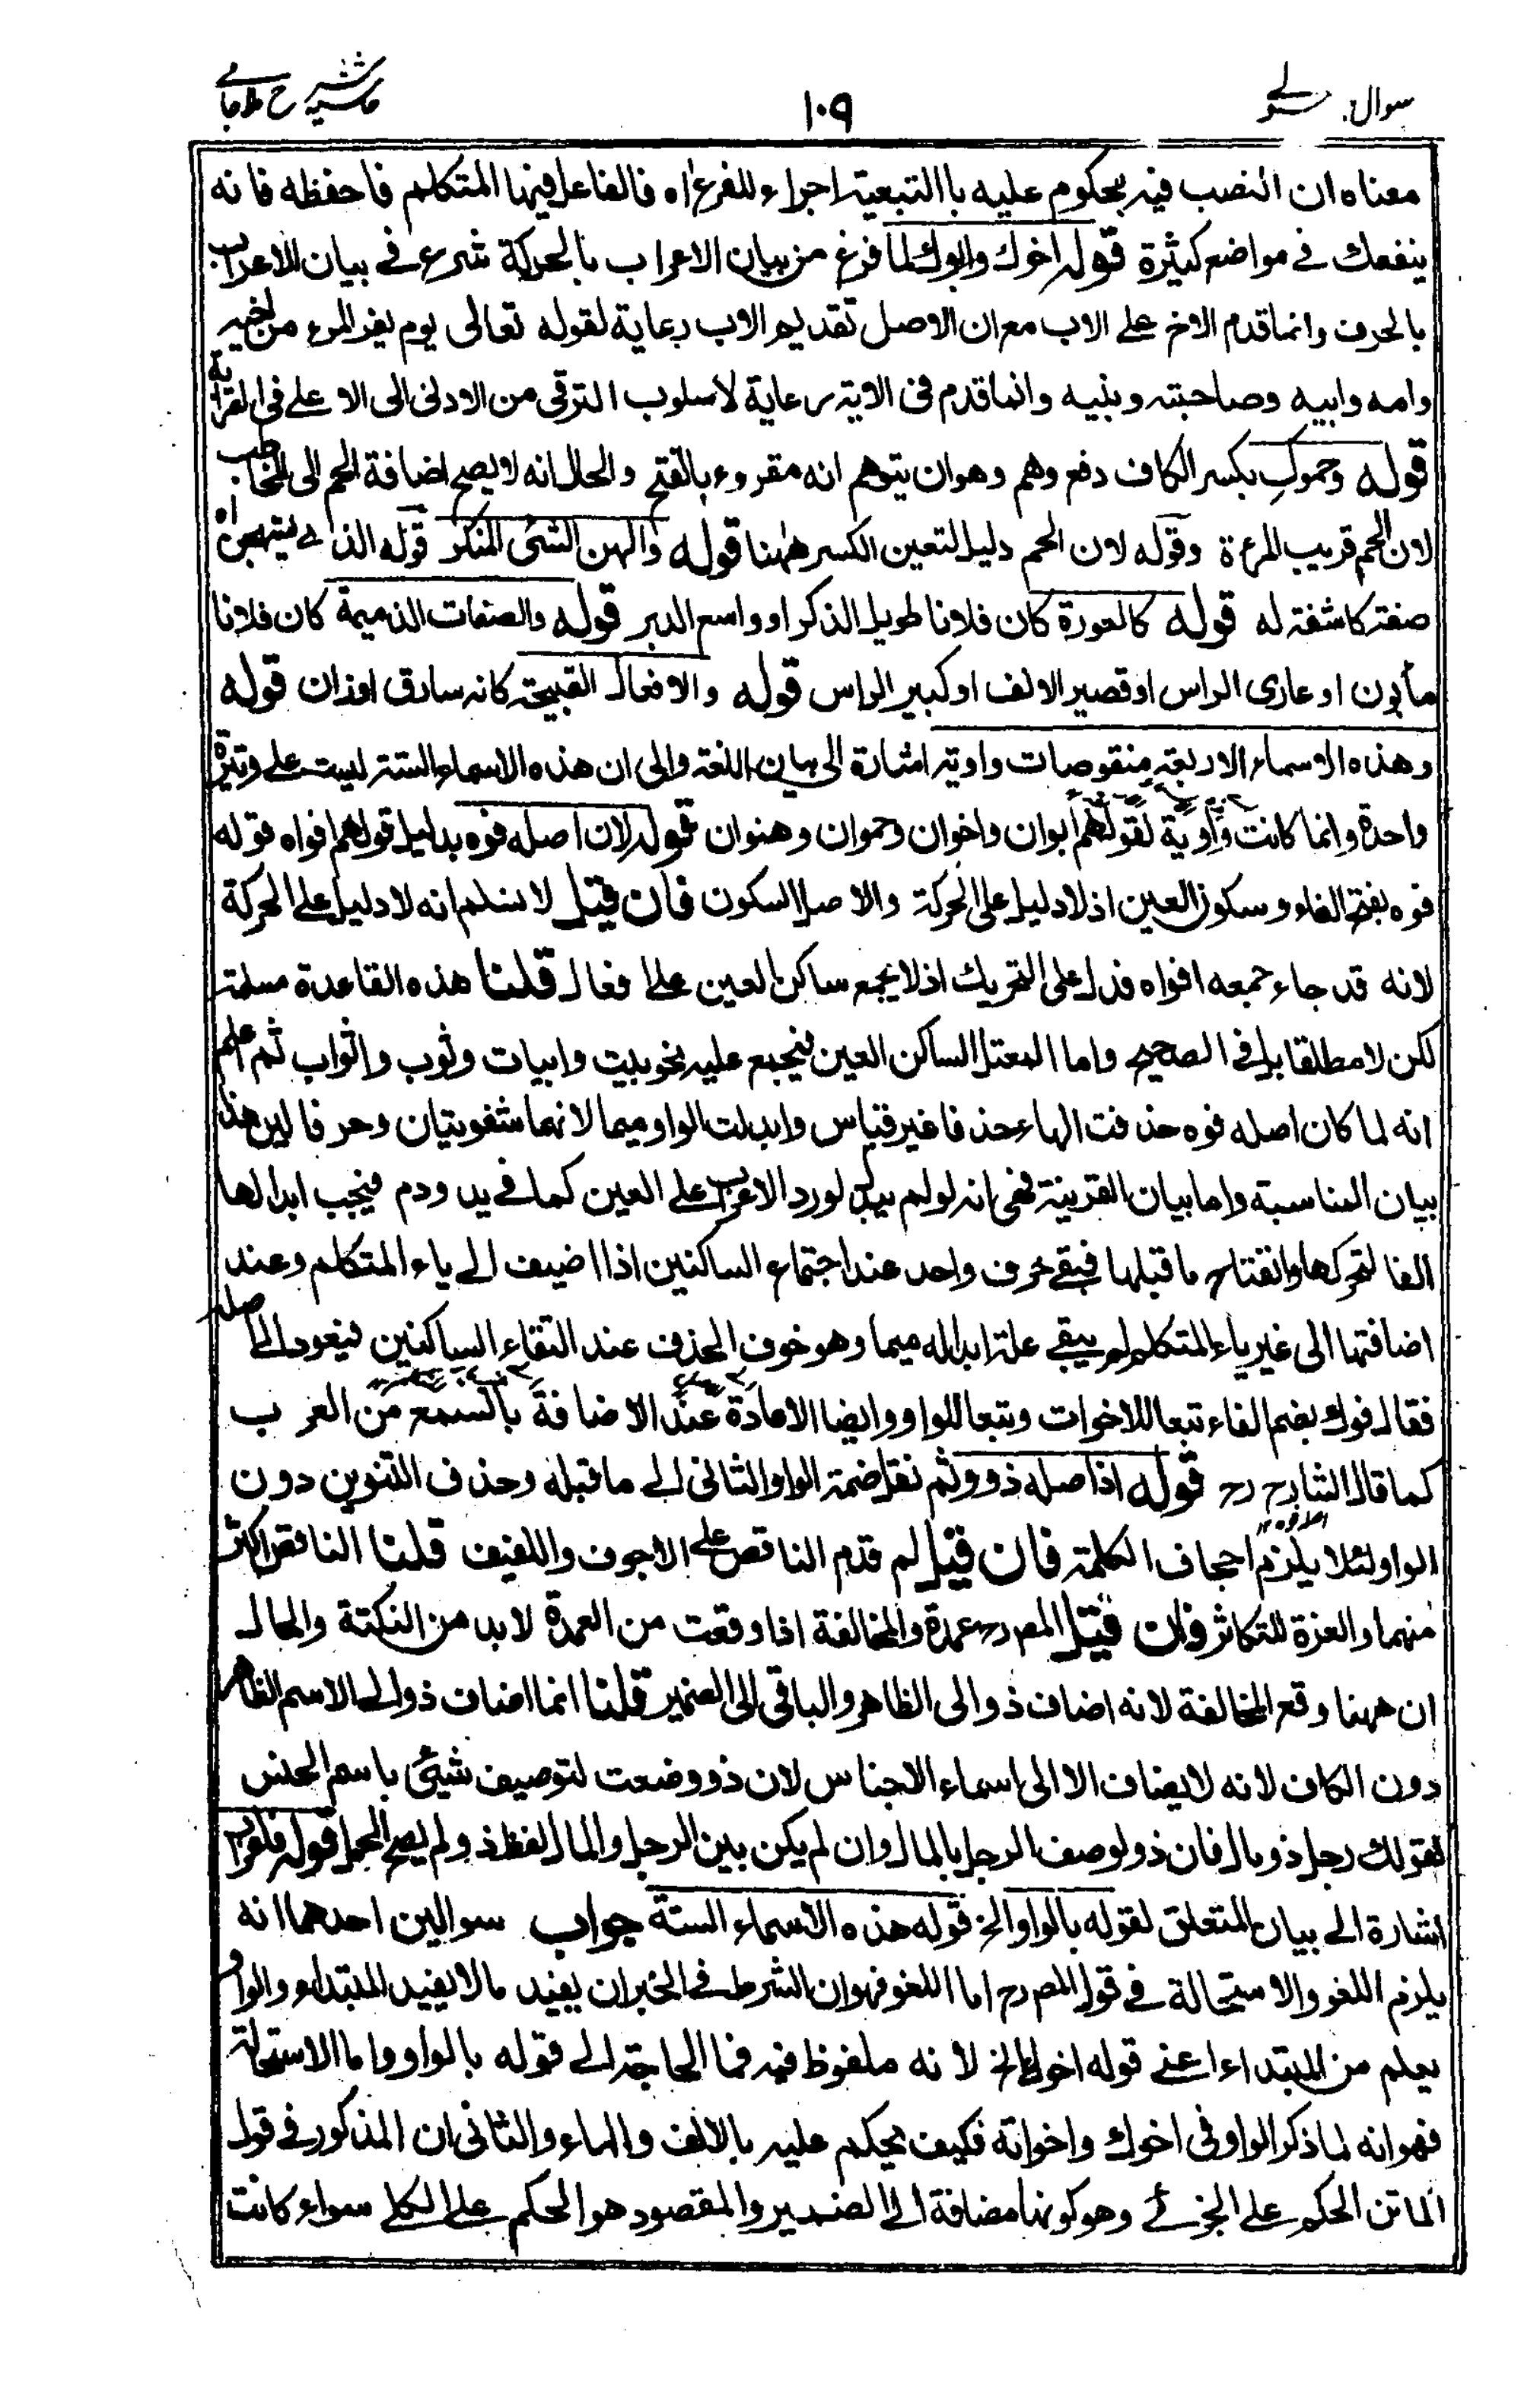 سوال سولے
١٠٩
حاشیہ شرح ملا جامے
معناه ان النصب فیہ بحکوم علیه باالتبعیتہ اجراء للفرع اه فالفاعل فیہا المتکلم فاحفظه فانه
ینفعك فے مواضع کثیرة قوله اخوك وابوك لما فرغ من بیان الاعراب بالحرکة شرع فے بیان الاعراب
بالحرف وانما قدم الاخ علے الاب مع ان الاصل تقدیم الاب رعایة لقوله تعالی یوم یفر المرء من اخیہ
وامه وابیه وصاحبتہ وبنیه وانما قدم فی الایتہ رعایة لاسلوب الترقی من الادنی الی الاعلے فی القرابة
قوله وحموكِ بکسر الکاف دفع وهم وهوان یتوهم انه مقروء بالفتح والحال انه لا یصح اضافة الحم الی المخاطب
لان الحم قریب المرءة وقوله لان الحم دلیل لتعین الکسر هٰهنا قوله والهن الشئ المنکر قوله الذے یستهجن اه
صفتہ کاشفتہ له قوله کالعورة کان فلانا طویل الذکر او واسع الدبر قوله والصفات الذمیمة کان فلانا
مأبون او عاری الراس او قصیر الالف او کبیر الراس قوله والافعال القبیحتہ کانہ سارق اوزان قوله
وهذه الاسماء الاربعتہ منقوصات واویتہ اشارة الی بیان اللغتہ والی ان هذه الاسماء الستتہ لیست علے وتیرة
واحدة وانما کانت واویة لقولهم ابوان واخوان وحموان وهنوان قوله لان اصله فوه بدلیل قولهم افواه قوله
فوه بفتح الفاء وسکون العین اذ لا دلیل علی الحرکتہ والاصل السکون فان قیل لا نسلم انه لا دلیل علے الحرکة
لانه قد جاء جمعه افواه فدل علی التحریك اذ لا یجمع ساکن العین علے افعال قلنا هذه القاعدة مسلمتہ
لکن لا مطلقا بل فے الصحیح واما المعتل الساکن العین فیجمع علیہ نحو بیت وابیات وثوب واثواب ثم اعلم
انه لما کان اصله فوه حذفت الهاء حذفا غیر قیاس وابدلت الواو میما لانهما شفویتیان وحرفا لین هذا
بیان المناسبة واما بیان القرینة فهی انہ لو لم یبدل لورد الاعراب علے العین کما فے ید ودم فیجب ابدالها
الفا لتحرکها وانفتاح ما قبلها فیبقے حرف واحد عند اجتماع الساکنین اذا اضیف الے یاء المتکلم وعند
اضافتها الی غیر یاء المتکلم لم یبقے علتہ ابداله میما وهو خوف الحذف عند التقاء الساکنین فیعود الے اصله
فقال فوك بضم الفاء تبعا للاخوات وتبعا للواو وایضا الاعادة عند الاضافة بالسمع من العرب
کما قال الشارح رح قوله اذ اصله ذوو ثم نقل ضمتہ الواو الثانی الے ما قبله وحذف التنوین دون
الواو لئلا یلزم احجاف الکلمتہ فان قیل لم قدم الناقص علے الاجوف واللفیف قلنا الناقص اکثر
منهما والعزة للتکاثر فان قیل المص رح عمدة والمخالفة اذا وقعت من العمدة لابد من النکتة والحال
ان ههنا وقع المخالفة لانه اضاف ذو الی الظاهر والباقی الی الضمیر قلنا انما اضاف ذو الے الاسم الظاهر
دون الکاف لانه لا یضاف الا الی اسماء الاجناس لان ذو وضعت لتوصیف شیئ باسم الجنس
لقولك رجل ذو مال فان ذو لوصف الرجل بالمال وان لم یکن بین الرجل والمال لفظ ذو لم یصح الحمل قوله فاعراب
اشارة الے بیان المتعلق لقوله بالواو الخ قوله هذه الاسماء الستة جواب سوالین احدهما انه
یلزم اللغو والاستحالة فے قول المص رح اما اللغو فهو ان الشرط فے الخبر ان یفید مالا یفید المبتداء والواو
یعلم من المبتداء اعنے قوله اخوك الخ لانه ملفوظ فیہ فما الحاجتہ الے قوله بالواو واما الاستحالتہ
فهو انه لما ذکر الواو فی اخوك واخواتہ فکیف یحکم علیہ بالالف والیاء والثانی ان المذکور فے قول
الماتن الحکم علے الجزئے وهو کونها مضافة الے الضمیر والمقصود هو الحکم علے الکلے سواء کانت